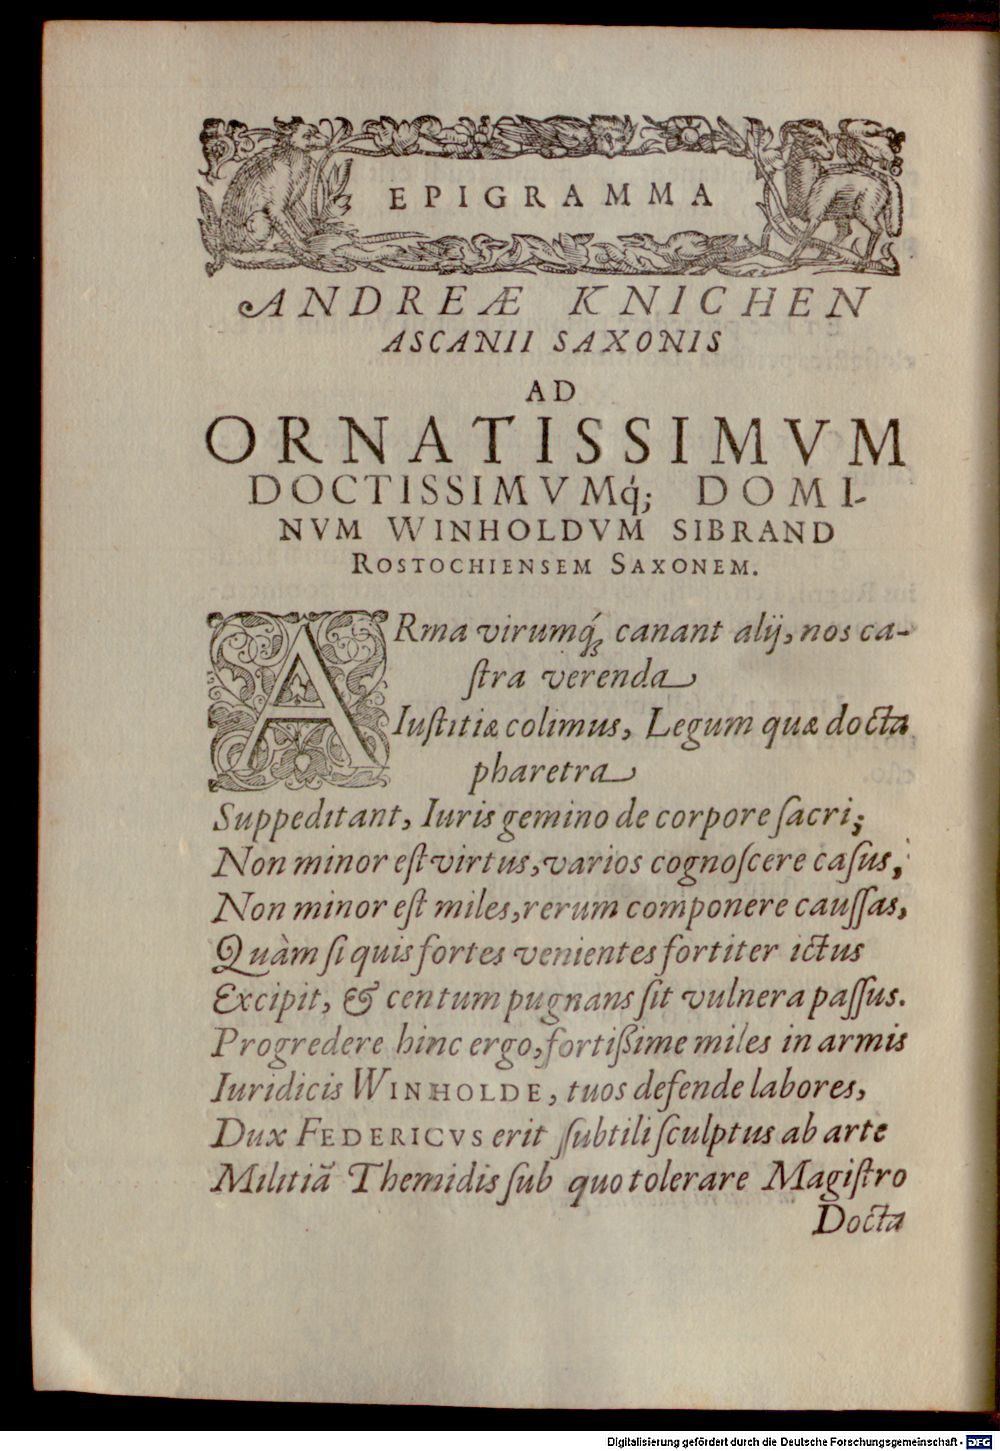 EPIGRAMMA
ANDREÆ KNICHEN
ASCANII SAXONIS
AD
ORNATISSIMVM
DOCTISSIMVMq́; DOMI-
NVM WINHOLDVM SIBRAND
ROSTOCHIENSEM SAXONEM.
ARma virumq́ꝫ canant alij, nos ca-
ſtra verenda
Iuſtitiæ colimus, Legum quæ docta
pharetra
Suppeditant, Iuris gemino de corpore ſacri;
Non minor eſt virtus, varios cognoſcere caſus,
Non minor eſt miles, rerum componere cauſſas,
Quàm ſi quis fortes venientes fortiter ictus
Excipit, & centum pugnans ſit vulnera paſſus.
Progredere hinc ergo, fortißime miles in armis
Iuridicis WINHOLDE, tuos defende labores,
Dux FEDERICVS erit ſubtili ſculptus ab arte
Militiã Themidis ſub quo tolerare Magiſtro
Docta
Digitalisierung gefördert durch die Deutsche Forschungsgemeinschaft - DFG